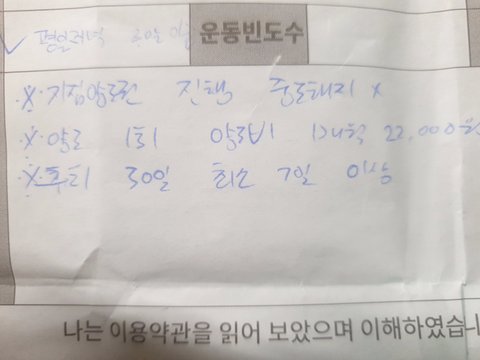 평일저녁 운동빈도수
※ 지점양도권 진행 중도해지 x
※ 양도 1회 양도비 22,000원
※ 후티 30일 최소 7일 이상
나는 이용약관을 읽어 보았으며 이해하였습니